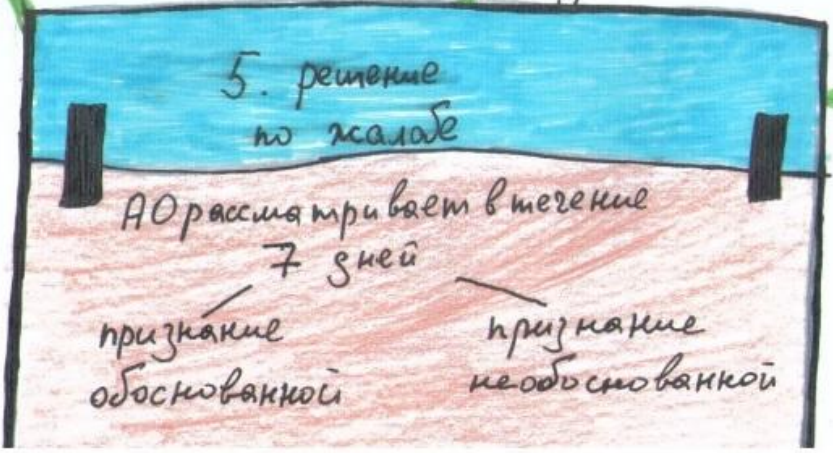 5. решение
по жалобе
АО рассматривает в течение
7 дней
признание обоснованной
признание необоснованной